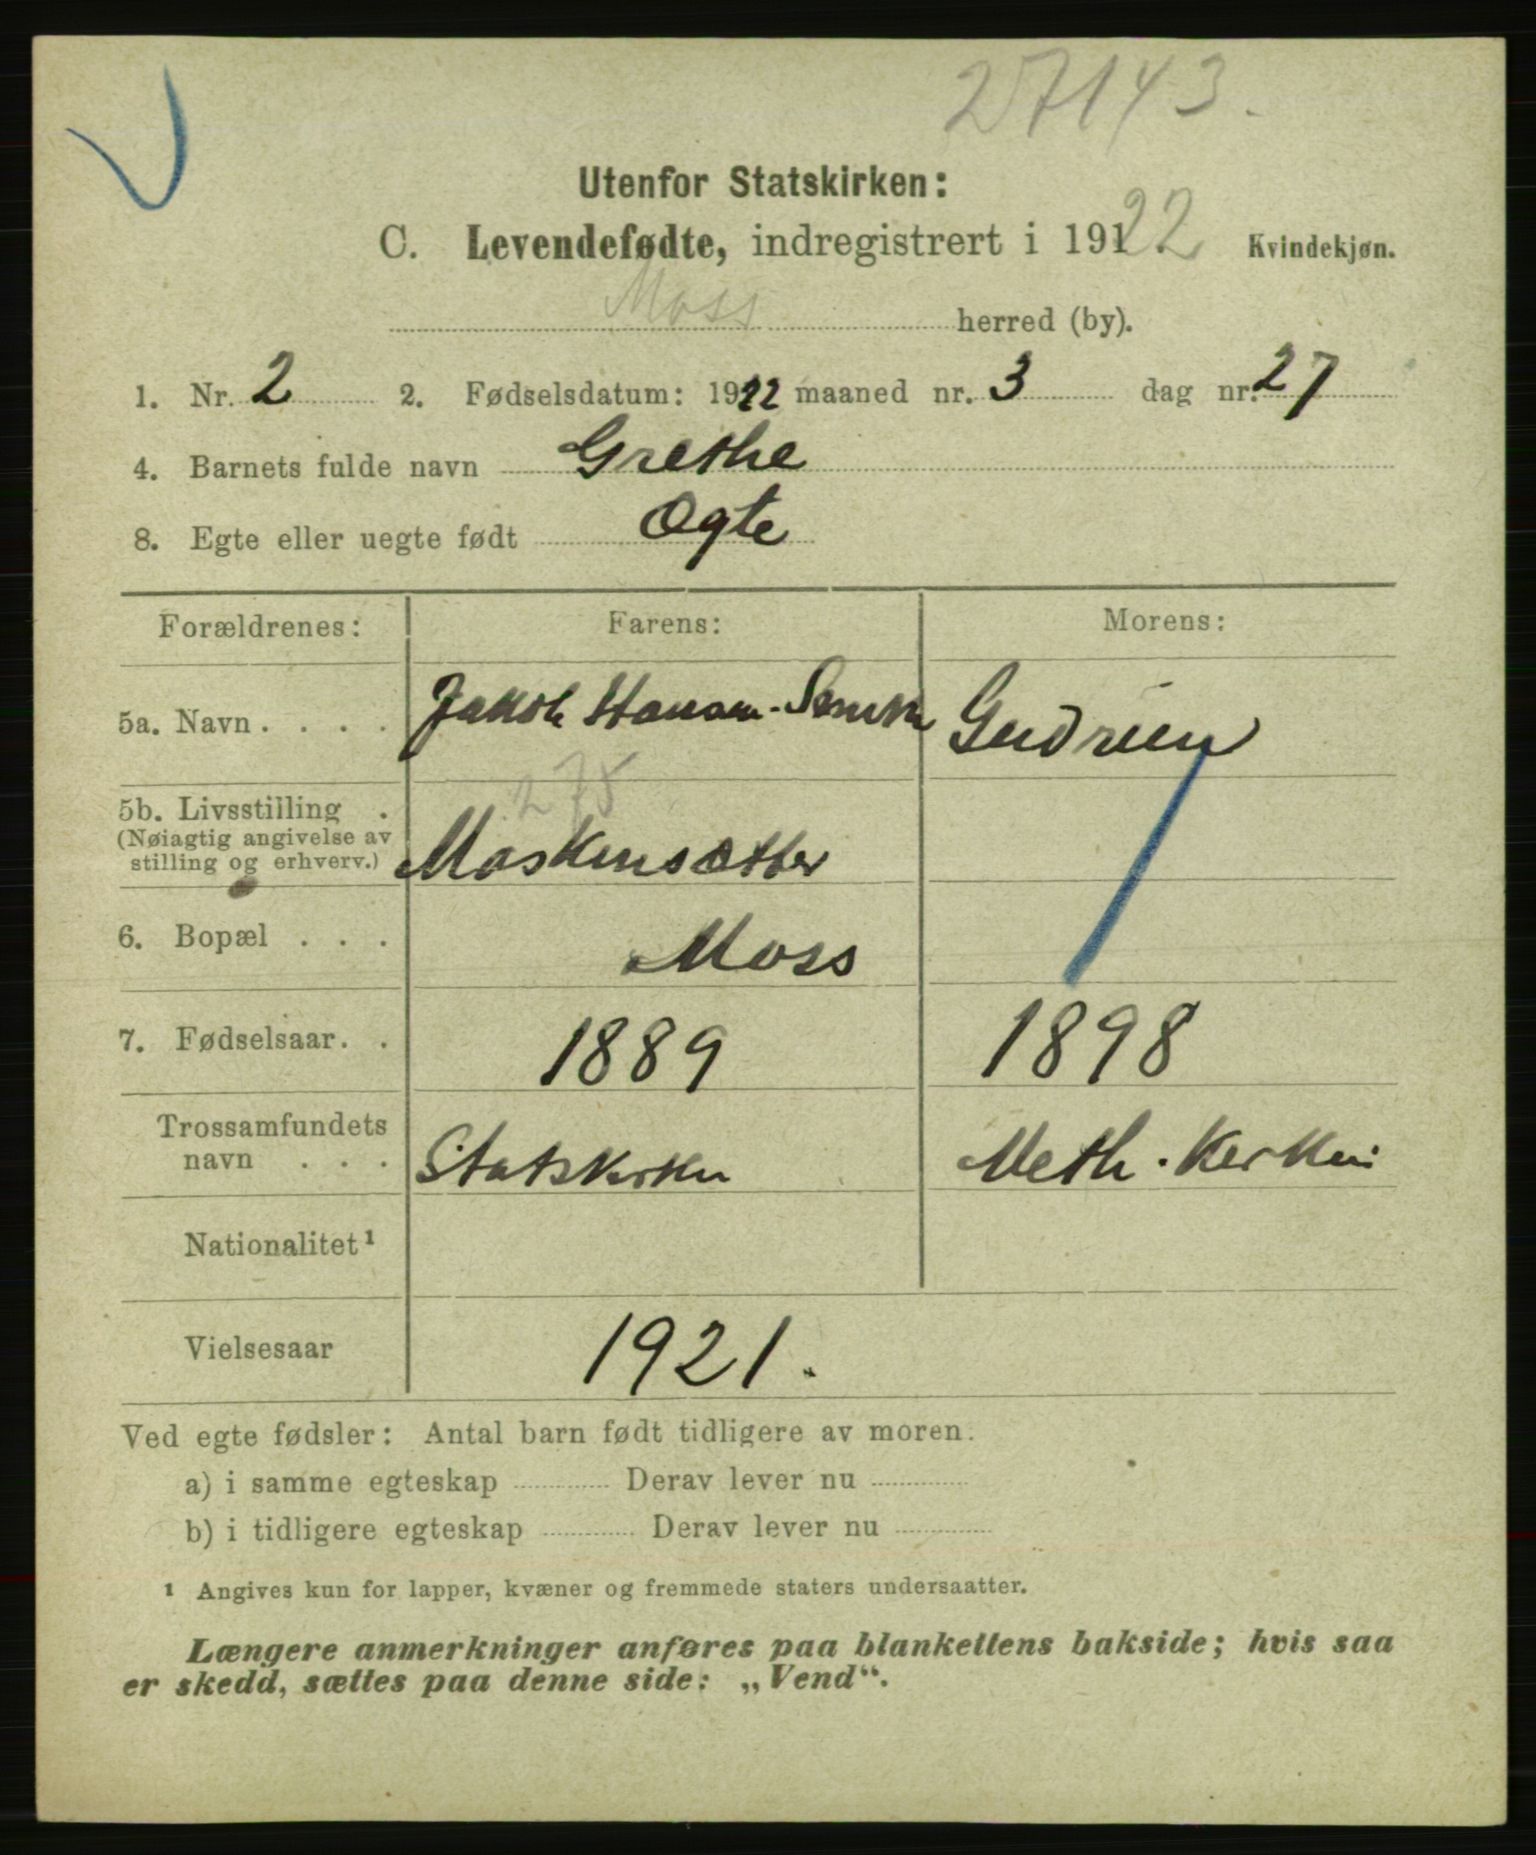 27143.
Utenfor Statskirken:
C. Levendefødte, indregistrert i 1922 Kvindekjøn.
Moss herred (by).
1. Nr. 2 2. Fødselsdatum: 1922 maaned nr. 3 dag nr. 27
4. Barnets fulde navn Grethe
8. Egte eller uegte født Ægte
Forældrenes: Farens: Morens:
5a. Navn . . . . Jakob Gudrun
275
5b. Livsstilling .
(Nøiagtig angivelse av
stilling og erhverv.) Maskinsætter
6. Bopæl . . . Moss
7. Fødselsaar. . 1889 1898
Trossamfundets
navn . . . Statskirken Meth. Kirken
Nationalitet¹
Vielsesaar 1921.
Ved egte fødsler: Antal barn født tidligere av moren.
a) i samme egteskap Derav lever nu
b) i tidligere egteskap Derav lever nu
¹ Angives kun for lapper, kvæner og fremmede staters undersaatter.
Længere anmerkninger anføres paa blankettens bakside; hvis saa
er skedd, sættes paa denne side: „Vend“.